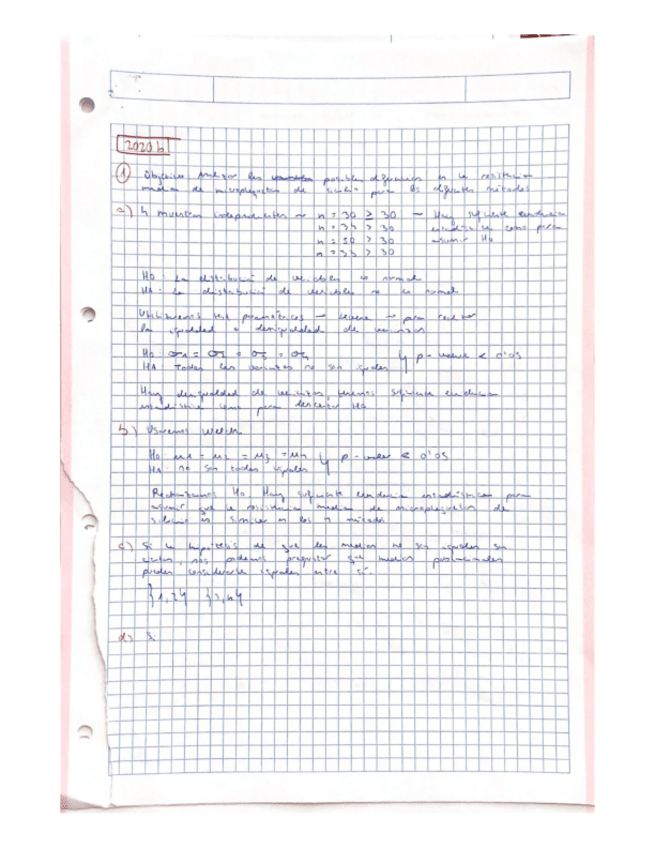 2020 b
① Objetivo: Analizar las posibles diferencias en la resistencia
media de microplaquetas de para los diferentes métodos
a) 4 muestras independientes ~ n = 30 ≥ 30 ~ Hay suficiente evidencia
n = 33 > 30 estadística como para
n = 50 > 30 asumir H0
n = 35 > 30
H0: La distribución de variables es normal
HA: La distribución de variables no es normal
Utilizaremos test paramétricos → Levene → para
la igualdad o desigualdad de varianzas
H0: σ1 = σ2 = σ3 = σ4 y p-value < 0'05
HA: Todas las varianzas no son iguales
Hay desigualdad de varianzas, tenemos suficiente evidencia
estadística como para H0
b) Usaremos Welch
H0: μ1 = μ2 = μ3 = μ4 y p-value < 0'05
HA: no son todas iguales
Rechazamos H0. Hay suficiente evidencia estadística para
asumir que la resistencia media de microplaquetas de
silicio es similar en los 4 métodos
c) Si la hipótesis de que las medias no son iguales son
nos podemos preguntar qué medias poblacionales
pueden considerarse iguales entre sí.
}1,24 }3,44
d) S